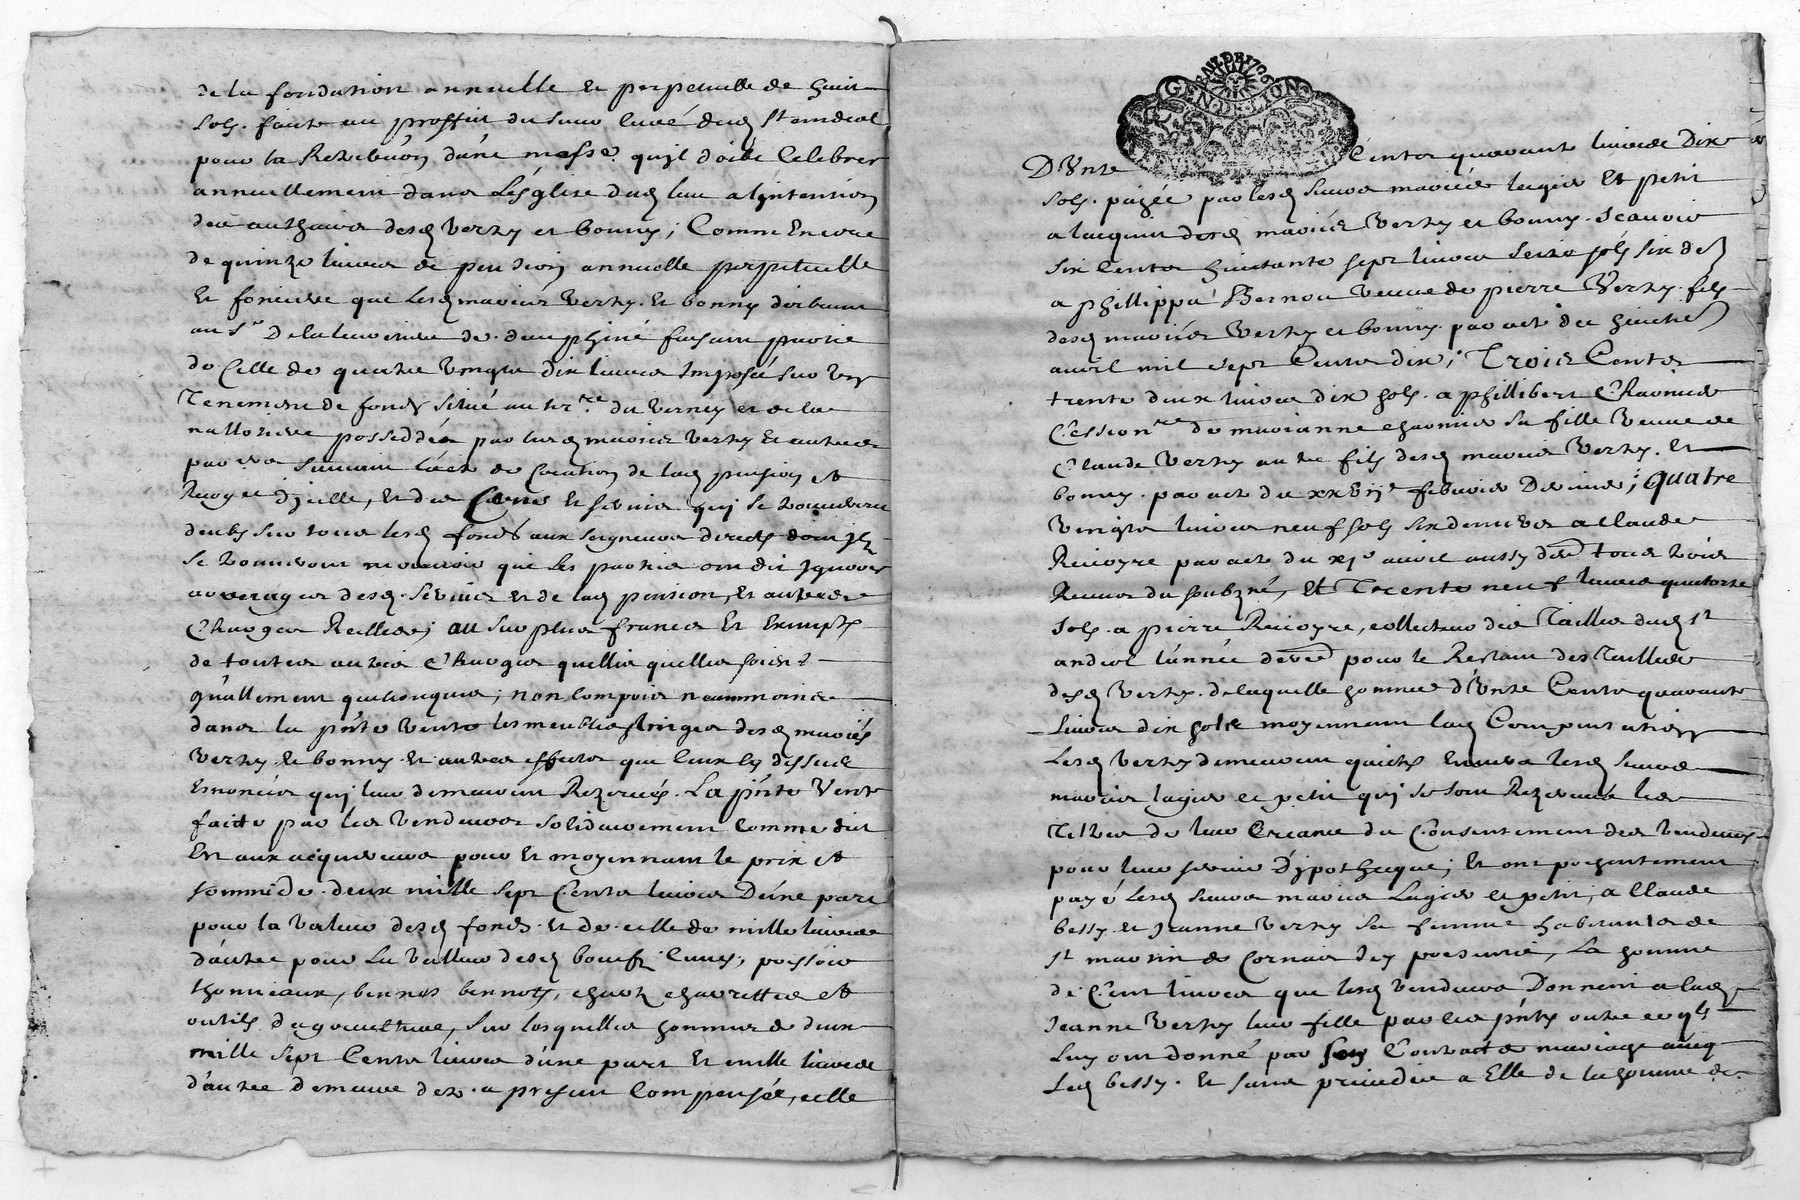 de la fondation annuelle et perpetuelle de huit
sols faite au proffit du sieur curé dud St andeol
pour la Retribuõn d'une messe qu'jl doibt Celebrer
annuellement dans L'église dud lieu a l'jntention
des autheurs desd Verny et bonny ; Comme Encore
de quinze livres de pension annuelle perpetuelle
Et fonciere que lesd mariés Verny Et bonny doibvent
au Sr De la de dauphiné faisant partie
de Celle de quatre Vingts dix livres jmposée sur Un
Tenement de fonds situé au terre du Verney et de la
possedés par lesd mariés Verny Et autres
par de Création de lad pension et
d'jcelle, Et des Cens Et servis quj se trouveront
deubs sur tous lesd fonds aux seigneurs directs dont jls
se trouveront mouvoir que les parties ont dit jgnorer
arrerages desd servis Et de lad pension, Et autres
Charges Reelles ; au surplus francs Et Exempts
de toutes autres Charges quelles quelles soient
g'nallement quelconques ; non Compris neanmoins
dans la p'nte Vente les meubles linges desd mariés
Verny Et bonny Et autres effets que Ceux cy dessus
Enoncés quj leur demeurent Rezervés. La p'nte Vente
faitte par les Vendeurs solidairement Comme dit
Est aux acquereurs pour Et moyennant le prix et
somme de deux mille sept Cents livres D'une part
pour la Valeur desd fonds Et de celle de mille livres
d'autre pour La Valleur desd boeufs Cuves, pressoir
thonneaux, bennes bennots, chars charrettes et
outils d'agriculture, sur lesquelles sommes de deux
mille sept Cents livres d'une part Et mille livres
d'autre demeure dez a present Compensée, celle
GEN·DE·LION
D'Unze Cents quarante livres Dix
sols payée par lesd sieurs mariés lagier Et petit
a lacquit desd mariés Verny et bonny. Scavoir
six Cents huitante sept livres seize sols six ds
a phillippa Bernou Veuve de pierre Verny fils
desd mariés Verny et bonny par act du huict
avril mil sept Cents dix ; Trois Cents
trente deux livres dix sols a phillibert Charmier
Cession.re de marianne charmier sa fille Veuve de
Claude Verny autre fils desd mariés Verny Et
bonny par act du xxvije febvrier Dernier ; quatre
Vingts livres neuf sols six deniers a Claude
Recoyre par act du xje avril aussy dr tous trois
Receus du soubzné, Et Trente neuf livres quatorze
sols a pierre Recoyre, collecteur des Tailles dud St
andeol l'année der pour le Restant des Tailles
desd Verny. de laquelle somme d'Unze Cents quarante
Livres dix sols moyennant lad Compensation
Lesd Verny demeurent quictes Envers lesd sieurs
mariés lagier et petit quj se sont Rezervés les
Tiltres de leur Creance du Consentement des Vendeurs
pour leur servir d'jpotheque ; Et ont presentement
payé lesd sieurs mariés Lagier et petit, a Claude
bessy et jeanne Verny sa femme habitants de
St martin de Cornas icy presents, La somme
de Cent livres que lesd Vendeurs Donnent a lad
jeanne Verny leur fille par ces p'ntes outre ce qls
Luy ont donné par son Contract de mariage avec
Led bessy. Et sans prejudice a Elle de la somme de